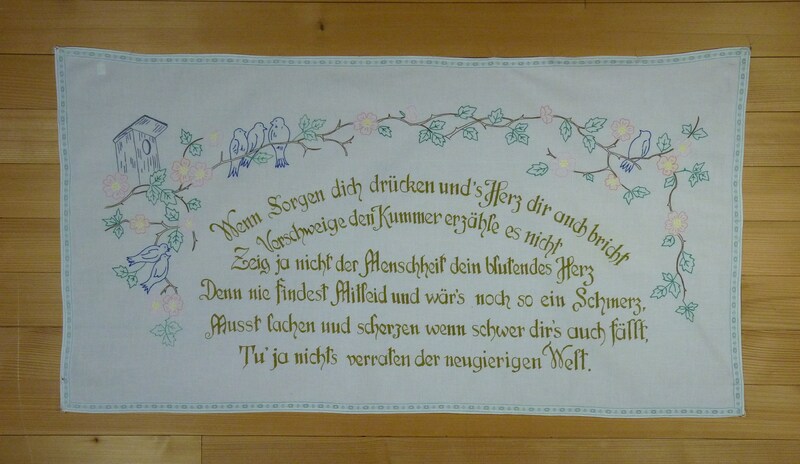 Wenn Sorgen dich drücken und's Herz dir auch bricht
Verschweige den Kummer erzähle es nicht
Zeig ja nicht der Menschheit dein blutendes Herz
Denn nie findest Mitleid und wär's noch so ein Schmerz,
Musst lachen und scherzen wenn schwer dir's auch fällt,
Tu' ja nichts verraten der neugierigen Welt.